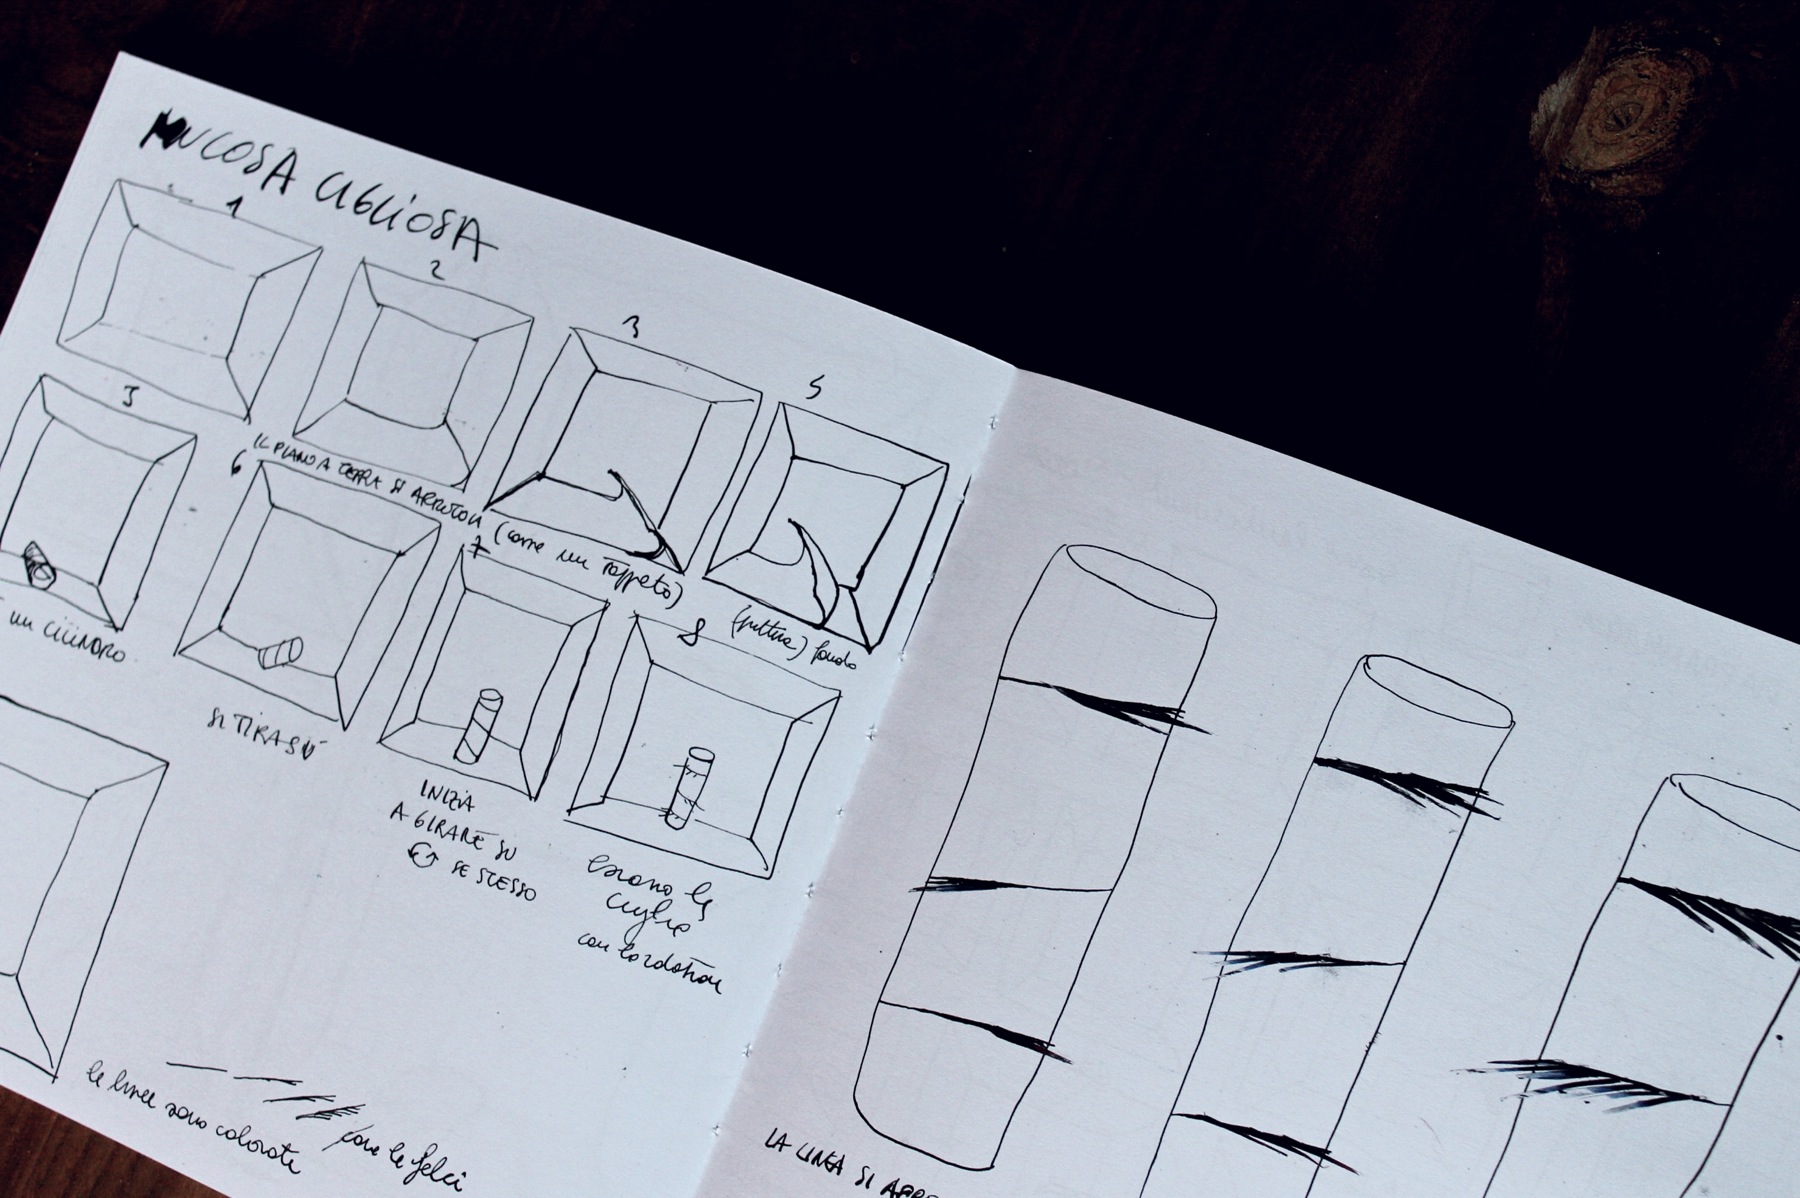 MUCOSA CIGLIOSA
1
2
3
5
IL PIANO A TERRA SI ARROTOLA (come un tappeto)
(pittura) fondo
3
6
7
8
un CILINDRO
SI TIRA SÙ
INIZIA
A GIRARE SU
SE STESSO
escono le
ciglia
con
le linee sono colorate
come le felci
LA LINEA SI APRE